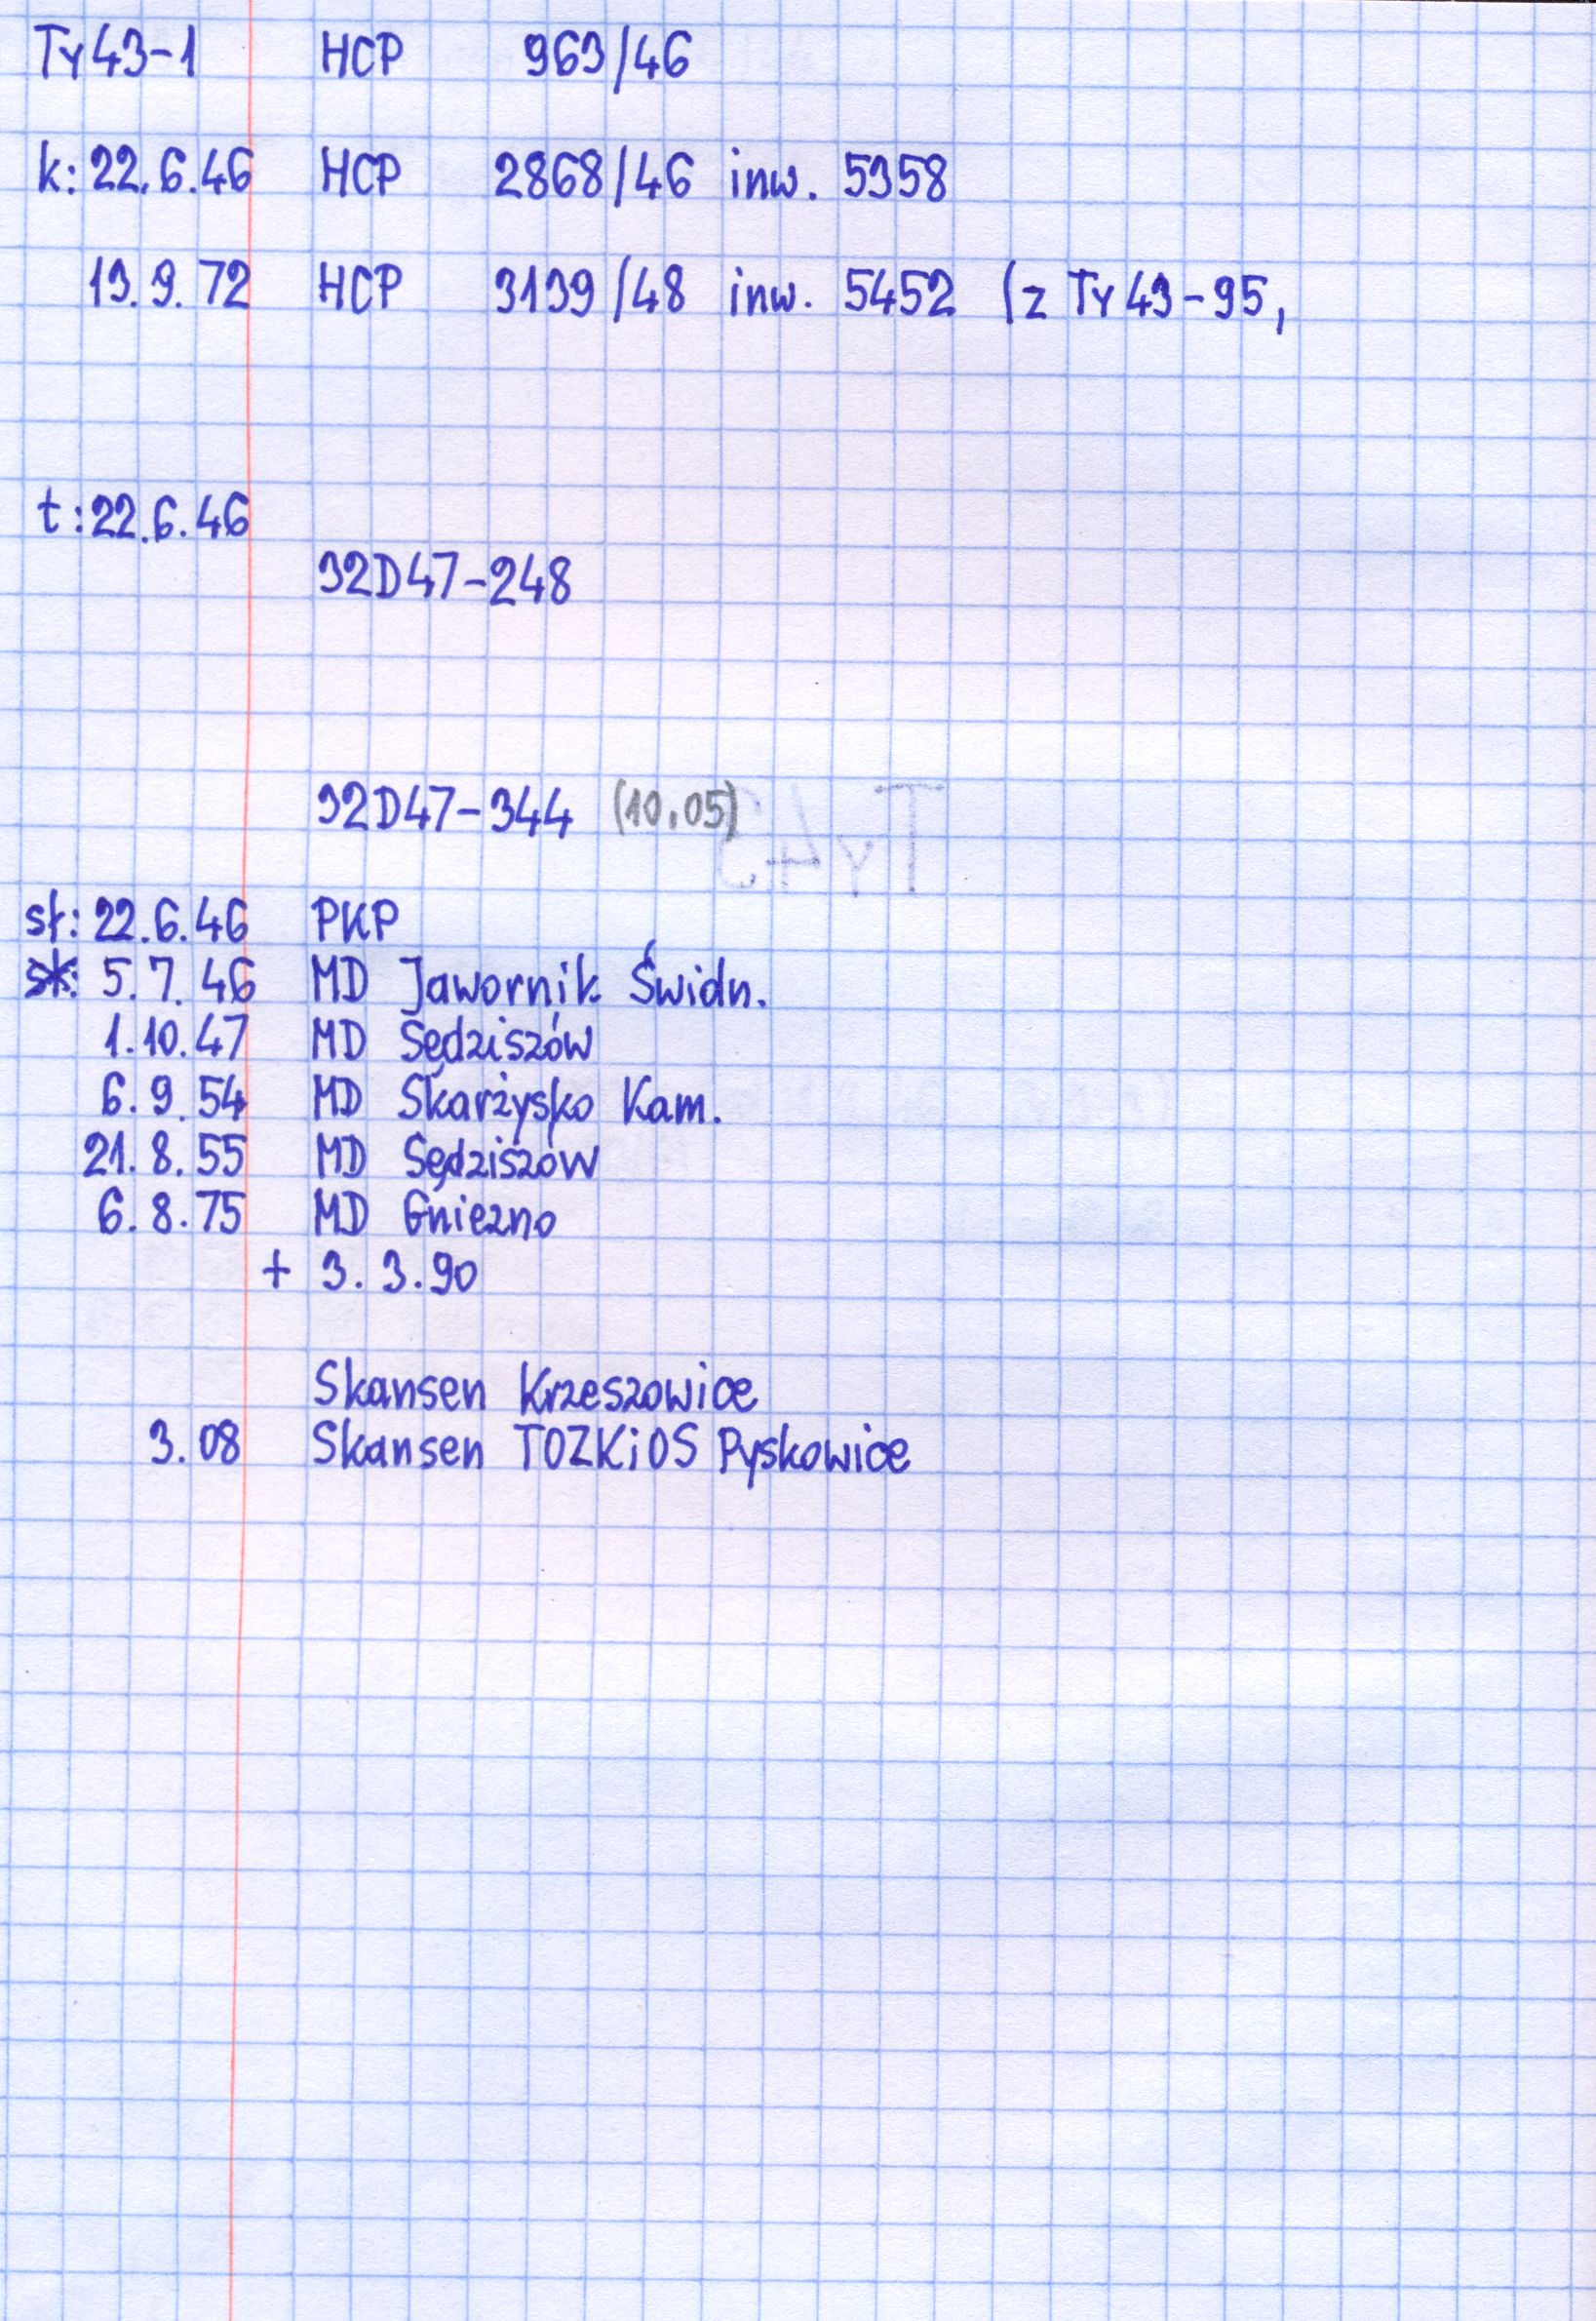 Ty43-1 HCP 963/46
k: 22.6.46 HCP 2868/46 inw. 5358
13.9.72 HCP 3139/48 inw. 5452 (z Ty43-95,
t: 22.6.46
32D47-248
32D47-344 (10.05)
sł: 22.6.46 PKP
5.7.46 MD Jawornik Świdn.
1.10.47 MD Sędziszów
6.9.54 MD Skarżysko Kam.
21.8.55 MD Sędziszów
6.8.75 MD Gniezno
+ 3.3.90
Skansen Krzeszowice
3.08 Skansen TOZKiOS Pyskowice